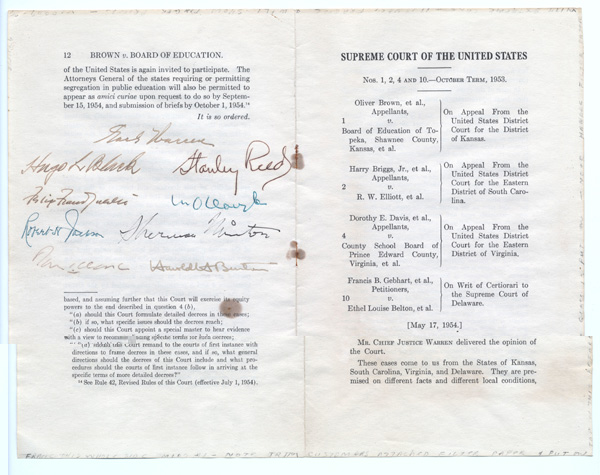 12 BROWN v. BOARD OF EDUCATION.
of the United States is again invited to participate. The
Attorneys General of the states requiring or permitting
segregation in public education will also be permitted to
appear as amici curiae upon request to do so by Septem-
ber 15, 1954, and submission of briefs by October 1, 1954.¹⁴
It is so ordered.
Earl Warren
Hugo L Black Stanley Reed
Felix Frankfurter
Robert H Jackson Sherman Minton
Harold H Burton
based, and assuming further that this Court will exercise its equity
powers to the end described in question 4 (b),
"(a) should this Court formulate detailed decrees in these cases;
"(b) if so, what specific issues should the decrees reach;
"(c) should this Court appoint a special master to hear evidence
with a view to recommending specific terms for such decrees;
"(d) should this Court remand to the courts of first instance with
directions to frame decrees in these cases, and if so, what general
directions should the decrees of this Court include and what pro-
cedures should the courts of first instance follow in arriving at the
specific terms of more detailed decrees?"
¹⁴ See Rule 42, Revised Rules of this Court (effective July 1, 1954).
SUPREME COURT OF THE UNITED STATES
Nos. 1, 2, 4 and 10.—OCTOBER TERM, 1953.
Oliver Brown, et al.,
Appellants,
1 v.
Board of Education of To-
peka, Shawnee County,
Kansas, et al.
On Appeal From the
United States District
Court for the District
of Kansas.
Harry Briggs, Jr., et al.,
Appellants,
2 v.
R. W. Elliott, et al.
On Appeal From the
United States District
Court for the Eastern
District of South Caro-
lina.
Dorothy E. Davis, et al.,
Appellants,
4 v.
County School Board of
Prince Edward County,
Virginia, et al.
On Appeal From the
United States District
Court for the Eastern
District of Virginia.
Francis B. Gebhart, et al.,
Petitioners,
10 v.
Ethel Louise Belton, et al.
On Writ of Certiorari to
the Supreme Court of
Delaware.
[May 17, 1954.]
MR. CHIEF JUSTICE WARREN delivered the opinion of
the Court.
These cases come to us from the States of Kansas,
South Carolina, Virginia, and Delaware. They are pre-
mised on different facts and different local conditions,